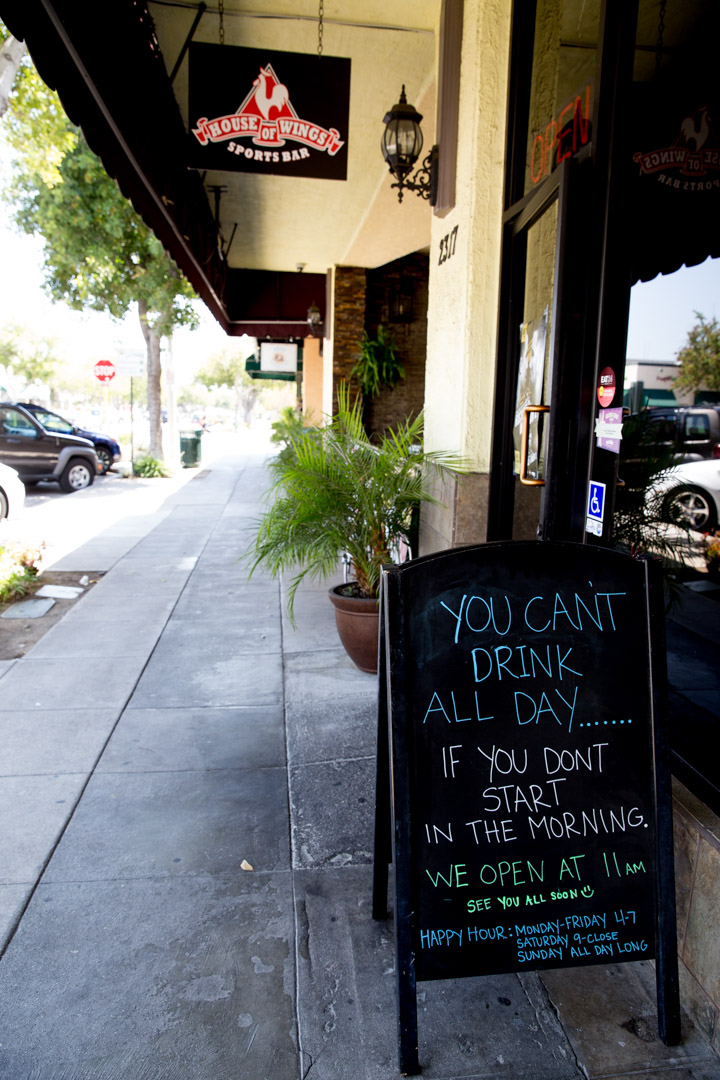 HOUSE OF WINGS
SPORTS BAR
OPEN
2317
STOP
YOU CAN'T
DRINK
ALL DAY.......
IF YOU DONT
START
IN THE MORNING.
WE OPEN AT 11AM
SEE YOU ALL SOON
HAPPY HOUR: MONDAY-FRIDAY 4-7
SATURDAY 9-CLOSE
SUNDAY ALL DAY LONG